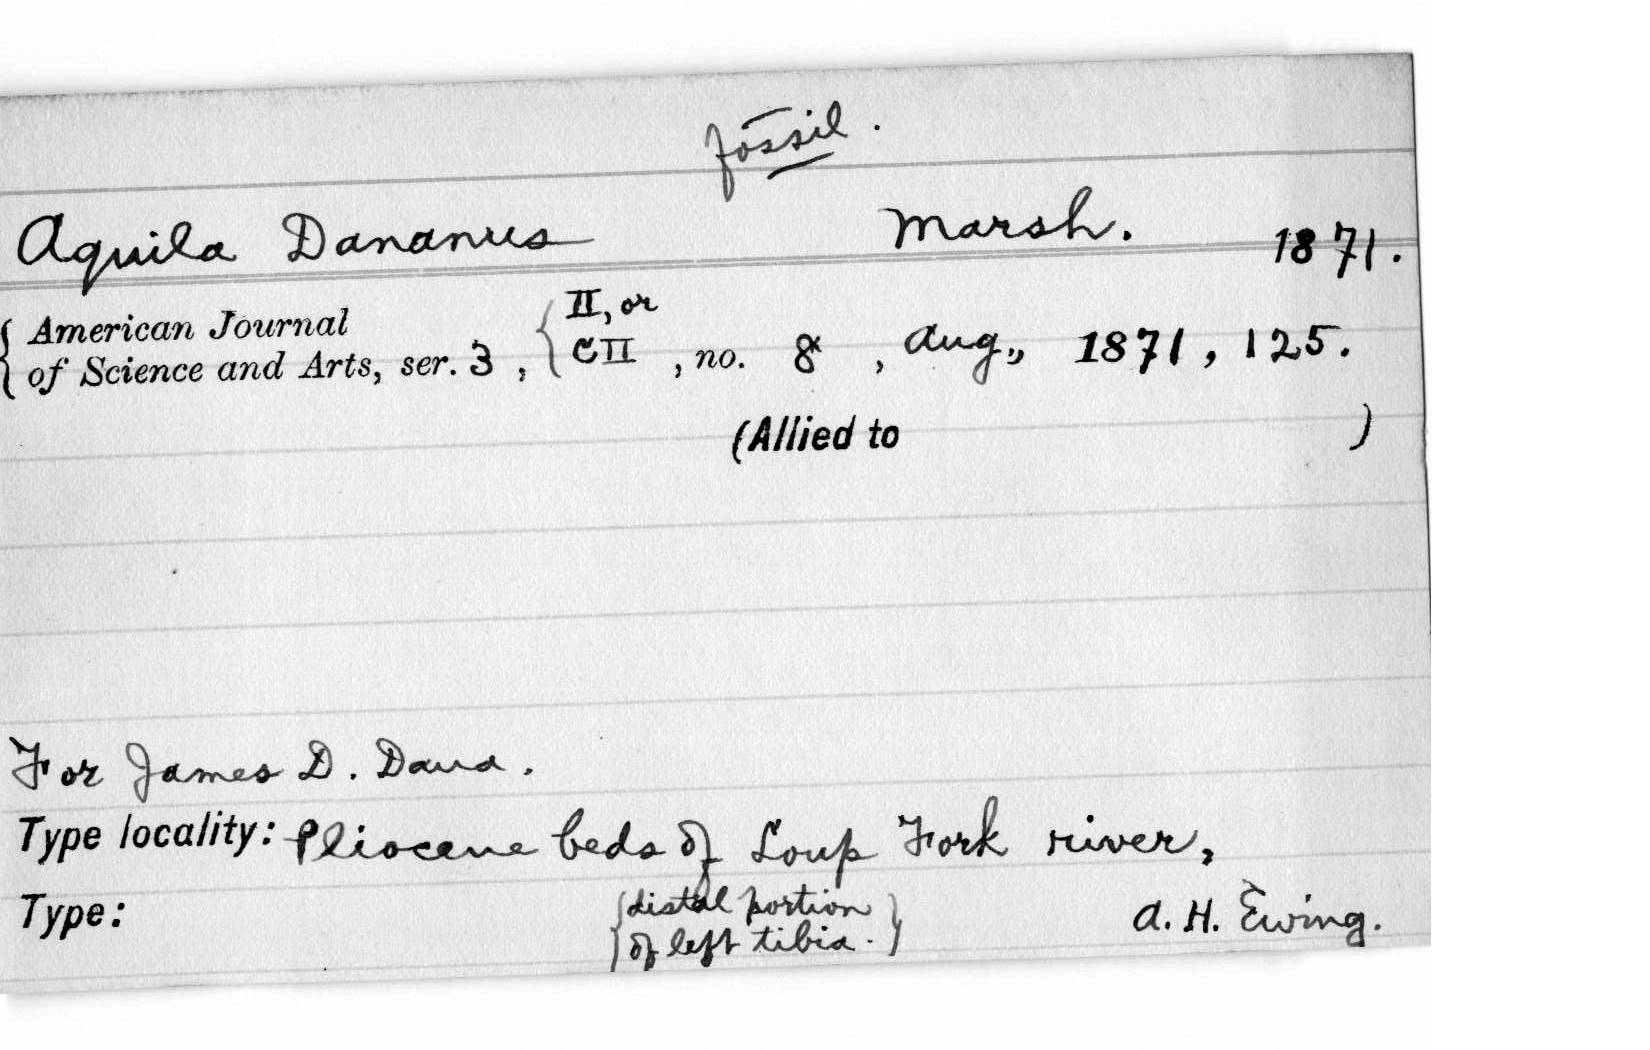 fossil.
Aquila Dananus Marsh. 1871.
{ American Journal { II, or
of Science and Arts, ser. 3, CII, no. 8, Aug., 1871, 125.
(Allied to )
For James D. Dana.
Type locality: Pliocene beds of Loup Fork river,
Type: { distal portion } A. H. Ewing.
of left tibia.